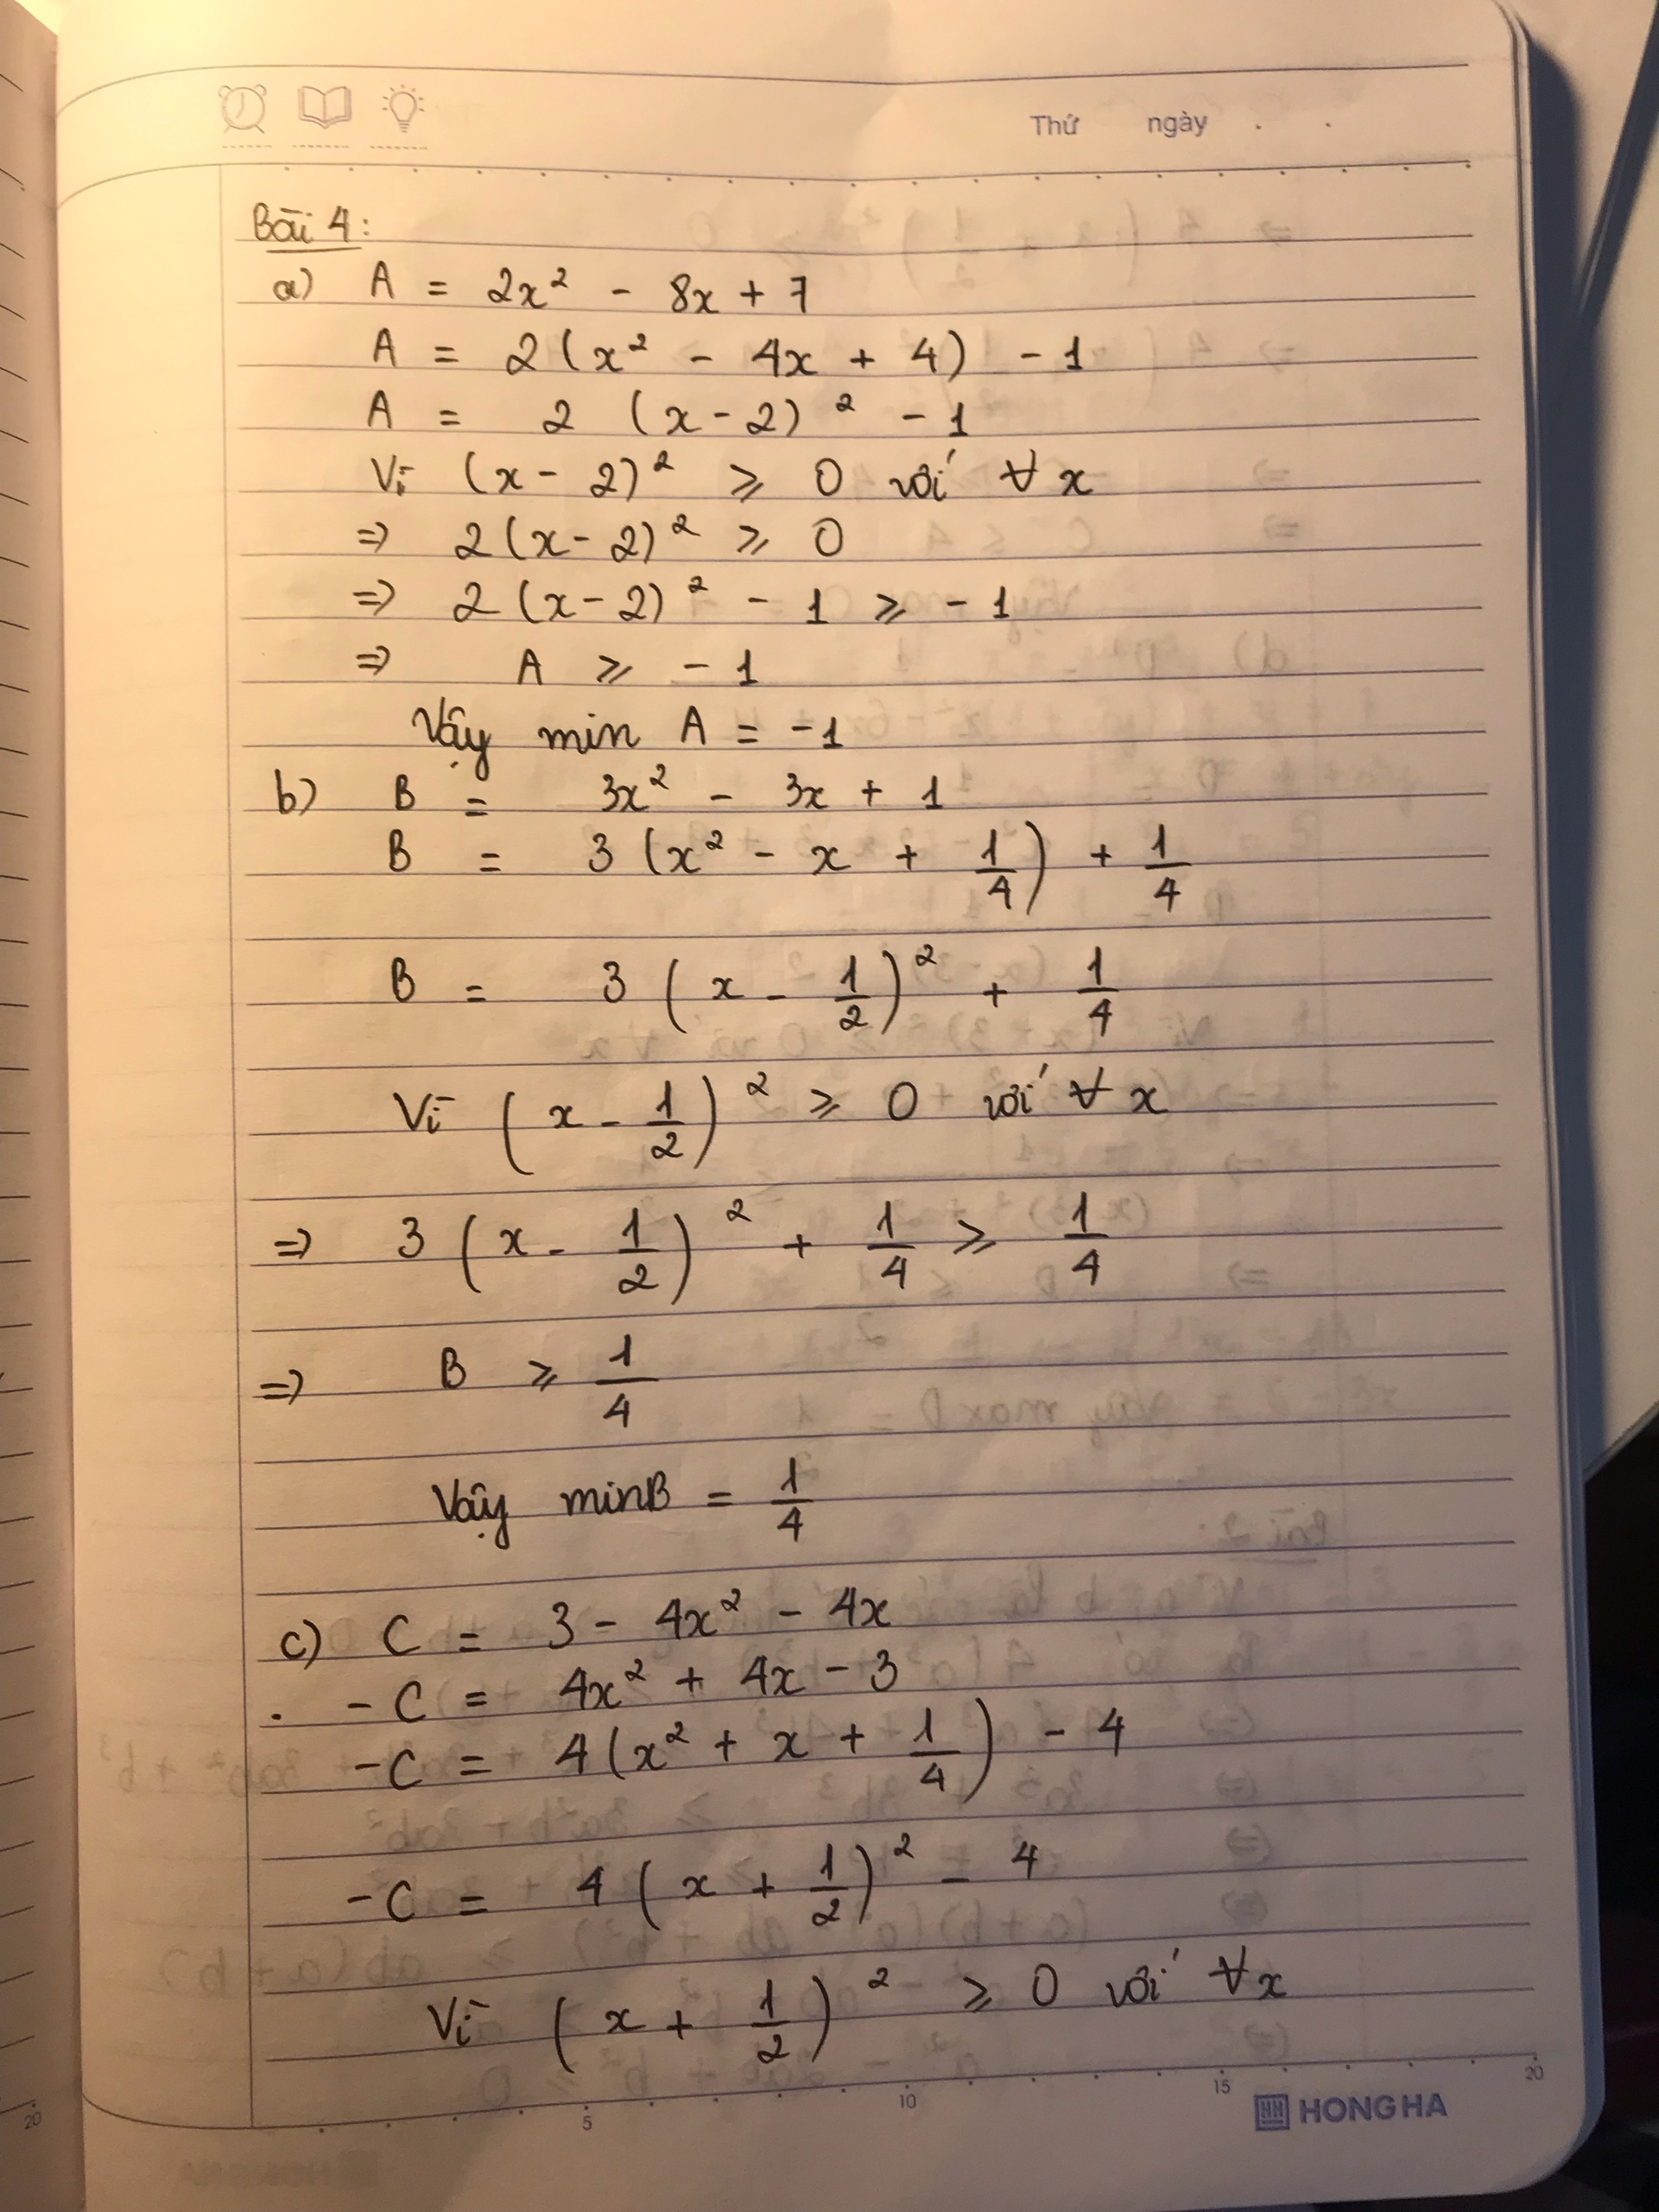 Thứ ngày . .
Bài 4:
a) A = 2x² - 8x + 7
A = 2(x² - 4x + 4) - 1
A = 2 (x - 2)² - 1
Vì (x - 2)² ⩾ 0 với ∀ x
=> 2(x - 2)² ⩾ 0
=> 2(x - 2)² - 1 ⩾ - 1
=> A ⩾ - 1
Vậy min A = -1
b) B = 3x² - 3x + 1
B = 3(x² - x + 1/4) + 1/4
B = 3(x - 1/2)² + 1/4
Vì (x - 1/2)² ⩾ 0 với ∀ x
=> 3(x - 1/2)² + 1/4 ⩾ 1/4
=> B ⩾ 1/4
Vậy minB = 1/4
c) C = 3 - 4x² - 4x
. - C = 4x² + 4x - 3
-C = 4(x² + x + 1/4) - 4
-C = 4(x + 1/2)² - 4
Vì (x + 1/2)² ⩾ 0 với ∀x
5 10 15 20
HH HONG HA
20